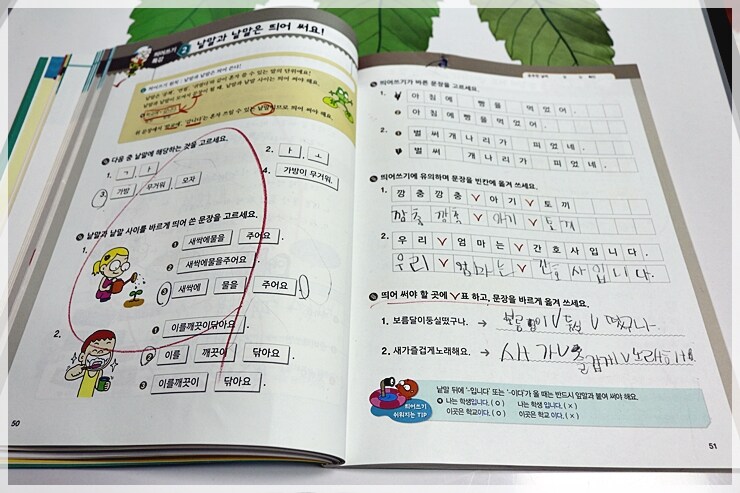 띄어쓰기 특강 2 낱말과 낱말은 띄어 써요!
다음 중 낱말에 해당하는 것을 고르세요.
1. ㄱ ㅏ
2. ㅏ, ㅗ
3. 가방 무거워. 모자
4. 가방이 무거워.
낱말과 낱말 사이를 바르게 띄어 쓴 문장을 고르세요.
1.
① 새싹에물을 주어요.
② 새싹에물을주어요.
③ 새싹에 물을 주어요.
2.
① 이를깨끗이닦아요.
② 이를 깨끗이 닦아요.
③ 이를깨끗이 닦아요.
50
띄어쓰기가 바른 문장을 고르세요.
1. 아침에 빵을 먹었어.
② 아침에빵을먹었어.
2. ① 벌써개나리가 피었네.
벌써 개나리가 피었네.
띄어쓰기에 유의하며 문장을 빈칸에 옮겨 쓰세요.
1. 깡충깡충∨아기∨토끼
2. 우리∨엄마는∨간호사입니다.
우리∨엄마는∨간호사입니다.
띄어 써야 할 곳에 ∨표 하고, 문장을 바르게 옮겨 쓰세요.
1. 보름달이둥실떴구나. →
2. 새가즐겁게노래해요. → 새가∨즐겁게∨노래해요
띄어쓰기
쉬워지는 TIP
낱말 뒤에 '-입니다' 또는 '-이다'가 올 때는 반드시 앞말과 붙여 써야 해요.
나는 학생입니다. (O) 나는 학생 입니다. (X)
이곳은 학교이다. (O) 이곳은 학교 이다. (X)
51